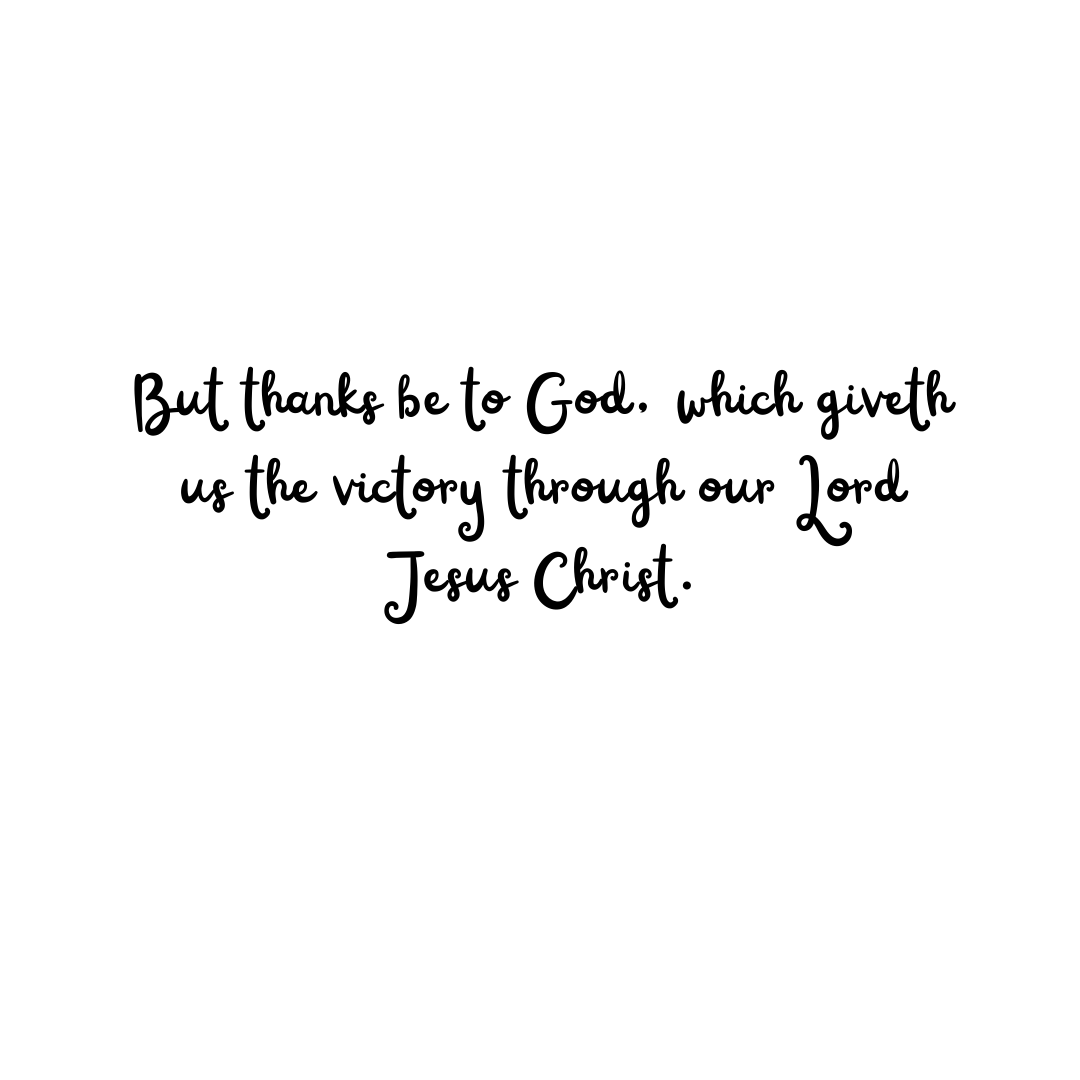 But thanks be to God, which giveth
us the victory through our Lord
Jesus Christ.